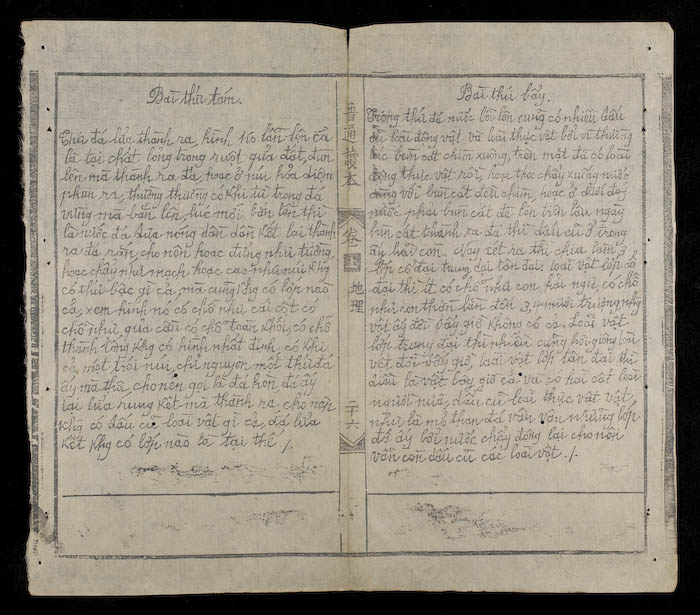 Bài thứ bảy.
Trong thứ đá nước bồi lên cũng có nhiều dấu
cũ loài động vật và loài thực vật bởi vì thường
bùn cát chìm xuống, trên mặt đá có loài
động thực vật rồi, hoặc trợ chảy xuống nước
cùng với bùn cát đều chìm, hoặc ở dưới đáy
nước phải bùn cát đè lên trên lâu ngày
bùn cát thành ra đá thì dấu cũ ở trong
ấy hãi còn. Nay xét ra thì chia làm
lớp cổ đại trung đại tân đại. loài vật lớp cổ
đại thì ít có chỗ như con hải ngư có chỗ
như con thằn lằn đến 3, 4 mươi trường
vật ấy đời bây giờ không có cả. Loài vật
lớp trung đại thì nhiều cũng hơi giống loài
vật đời bây giờ, loài vật lớp tân đại thì
đều là vật bây giờ cả và có hài cốt loài
người nữa, dấu cũ loài thực vật vật,
như là mỏ than đá vân vân những lớp
đó ấy bởi nước chảy đóng lại cho nên
vẫn còn dấu cũ các loài vật. /.
普通讀本
卷一
地理
二十六
Bài thứ tám.
Thứ đá lửa thành ra hình to lẫn lộn cả
là tại chất lỏng trong ruột quả đất, đùn
lên mà thành ra đá, hoặc ở núi hỏa diệm
phun ra, thường thường có khi từ trong đá
vững mà bắn lên, lúc mới bắn lên thì
là nước đá dưa nóng dần dần kết lại thành
ra đá rắn cho nên hoặc đứng như tường,
hoặc chảy như mạch hoặc cao như núi khg
có thứ bậc gì cả mà cũng khg có lớp nào
cả, xem hình nó có chỗ như cái cột có
chỗ như quả cầu có chỗ toàn khối, có chỗ
thành tầng khg có hình nhất định, có khi
cả một trái núi, chỉ nguyên một thứ đá
ấy mà thôi, cho nên gọi là đá hòn đá ấy
tại lửa rung kết mà thành ra, cho nên
khg có dấu cũ loài vật gì cả, đá lửa
kết khg có lớp nào là tại thế. /.